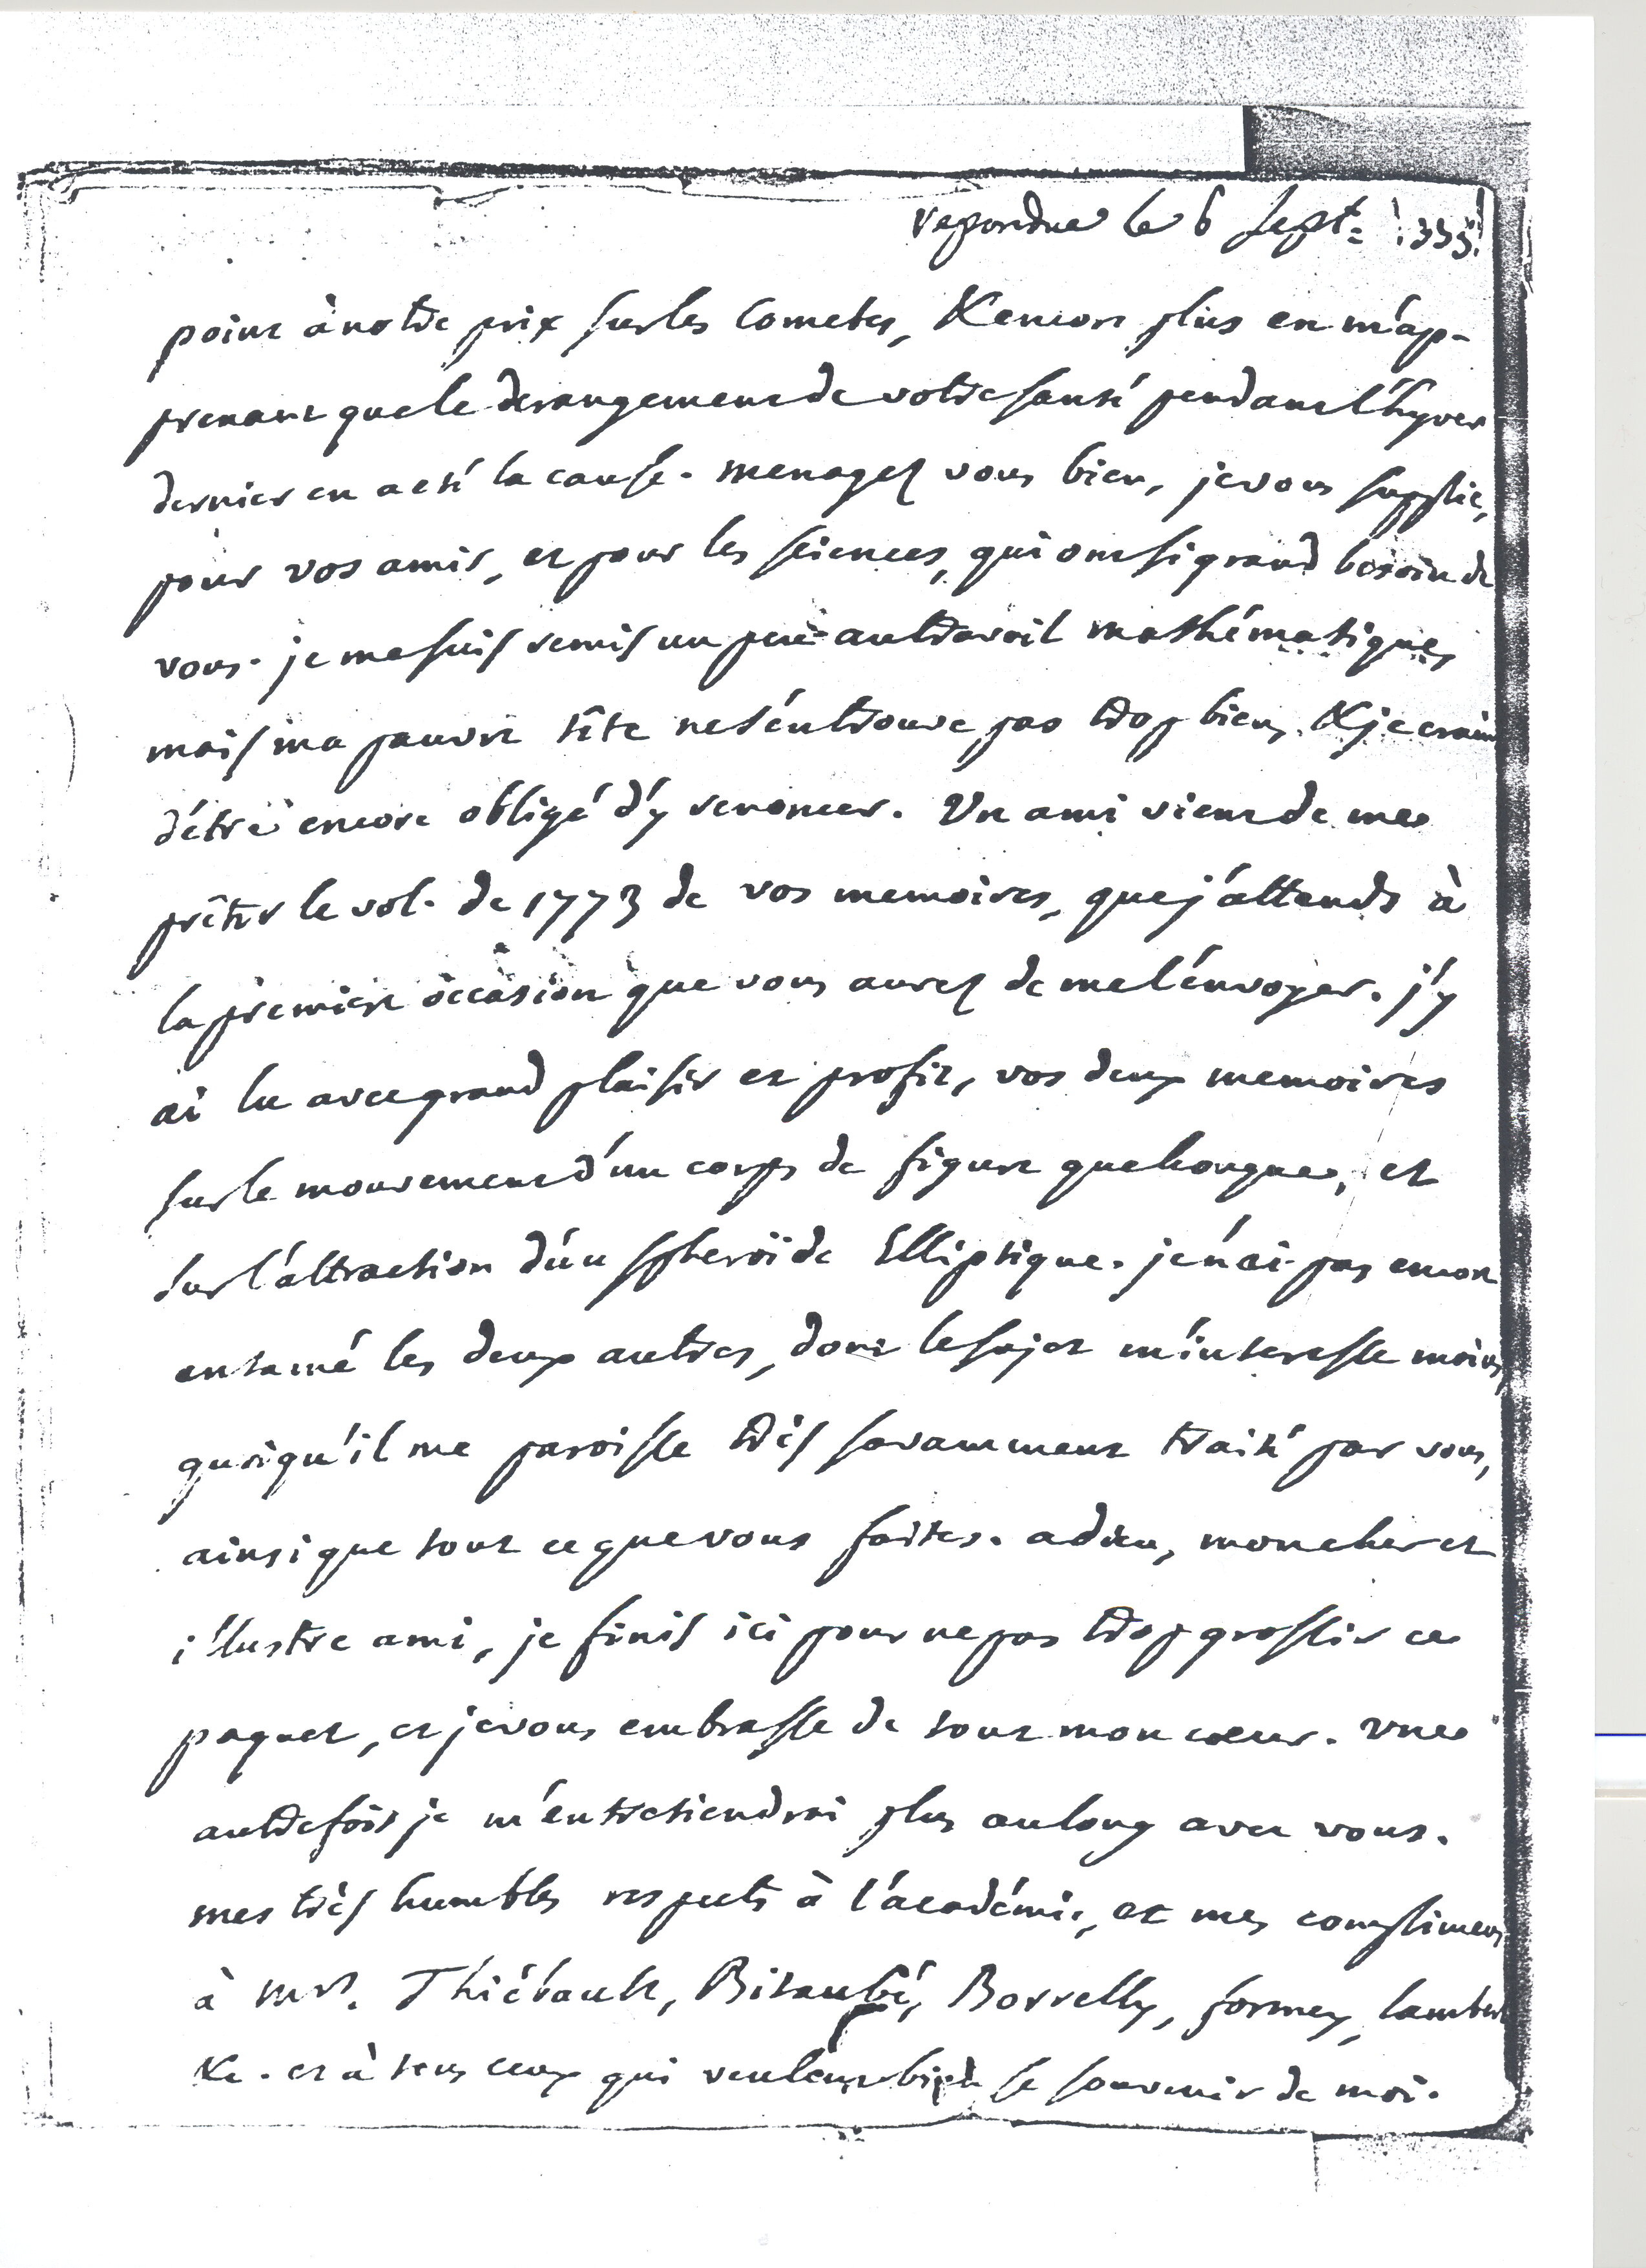 repondue le 6 sept.
point à notre prix sur les Cometes, & encore plus en m'ap-
prenant que le derangement de votre santé pendant l'hyver
dernier en a eté la cause. menagez vous bien, je vous supplie,
pour vos amis, et pour les sciences, qui ont si grand besoin de
vous. je me suis remis un peu au travail mathématique,
mais ma pauvre tête ne s'en trouve pas trop bien, & je crains
d'être encore obligé d'y renoncer. Un ami vient de me
prêter le vol. de 1773 de vos memoires, que j'attends à
la premiere occasion que vous aurez de me l'envoyer. j'y
ai lu avec grand plaisir et profit, vos deux memoires
sur le mouvement d'un corps de figure quelconque, et
sur l'attraction d'un spheroïde Elliptique. je n'ai pas encore
entamé les deux autres, dont le sujet m'interesse moins,
quoiqu'il me paroisse très savamment traité par vous,
ainsi que tout ce que vous faites. adieu, mon cher et
illustre ami, je finis ici pour ne pas trop grossir ce
paquet, et je vous embrasse de tout mon cœur. une
autre fois je m'entretiendrai plus au long avec vous.
mes très humbles respects à l'académie, et mes complimens
à mrs. Thiébault, Bitaubé, Borrelly, formey, lambert
&c. et à tous ceux qui veulent bien se souvenir de moi.